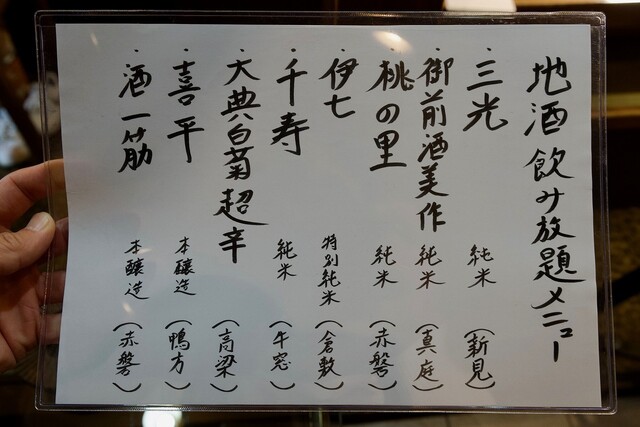 地酒飲み放題メニュー
・三光 純米 (新見)
・御前酒美作 純米 (真庭)
・桃の里 純米 (赤磐)
・伊七 特別純米 (倉敷)
・千寿 純米 (牛窓)
・大典白菊超辛 (高梁)
・喜平 本醸造 (鴨方)
・酒一筋 本醸造 (赤磐)